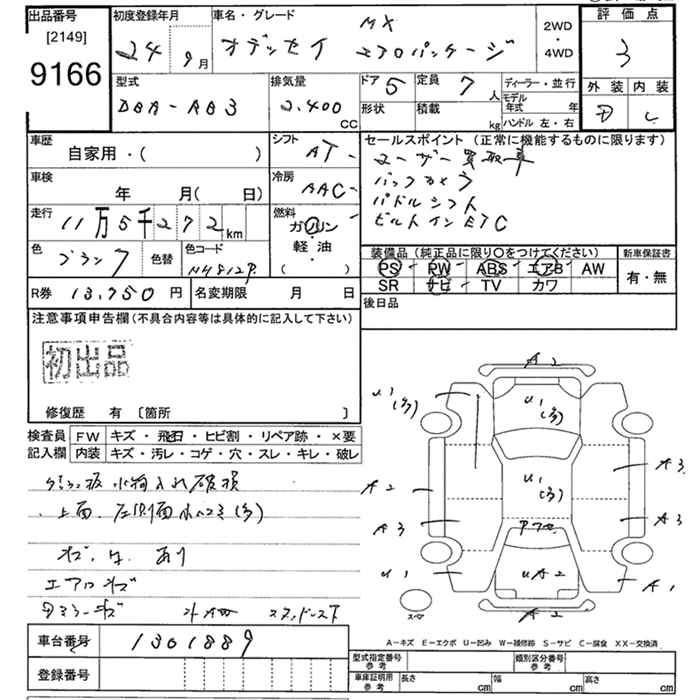 出品番号 [2149] 9166
初度登録年月 24 9月
車名・グレード オデッセイ MX エアロパッケージ
2WD・4WD
評価点 3
外装 内装 C
型式 DBA-RB3
排気量 2.400 CC
ドア 5
形状
定員 7人
積載 kg
ディーラー・並行
モデル年式 年
ハンドル 左・右
車歴 自家用・( )
シフト AT
車検 年 月(日)
冷房 AAC
走行 11万5千272km
燃料 ガソリン 軽油 ( )
色 ブラック
色替
色コード NH812P
R券 13.750円
名変期限 月 日
セールスポイント (正常に機能するものに限ります)
ユーザー買取車
バックカメラ
パドルシフト
ビルトインETC
装備品 (純正品に限り○をつけてください)
新車保証書
PS PW ABS エアB AW
有・無
SR ナビ TV カワ
後日品
注意事項申告欄 (不具合内容等は具体的に記入して下さい)
初出品
修復歴 有 〔箇所 〕
検査員記入欄
FW キズ・飛石・ヒビ割・リペア跡・×要
内装 キズ・汚レ・コゲ・穴・スレ・キレ・破レ
上面、左側面
キズ、 あり
エアロキズ
A2
U1 (多)
U1 (多)
U1 (多)
A2
A3
A3
A3
U1
UA2
A1
A2
スペア
A-キズ E-エクボ U-凹み W-補修跡 S-サビ C-腐食 XX-交換済
車台番号 1301889
登録番号
型式指定番号 参考
類別区分番号 参考
車庫証明用 参考
長さ cm 幅 cm 高さ cm